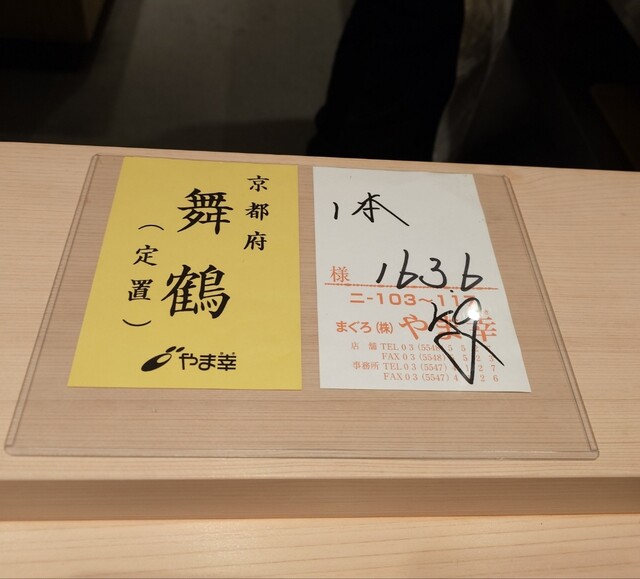 京都府
舞鶴
（定置）
やま幸
1本
様 163.6
kg
ニ-103~11
まぐろ(株) やま幸
店舗 TEL 03 (5548)
FAX 03 (5548)
事務所 TEL 03 (5547)
FAX 03 (5547)